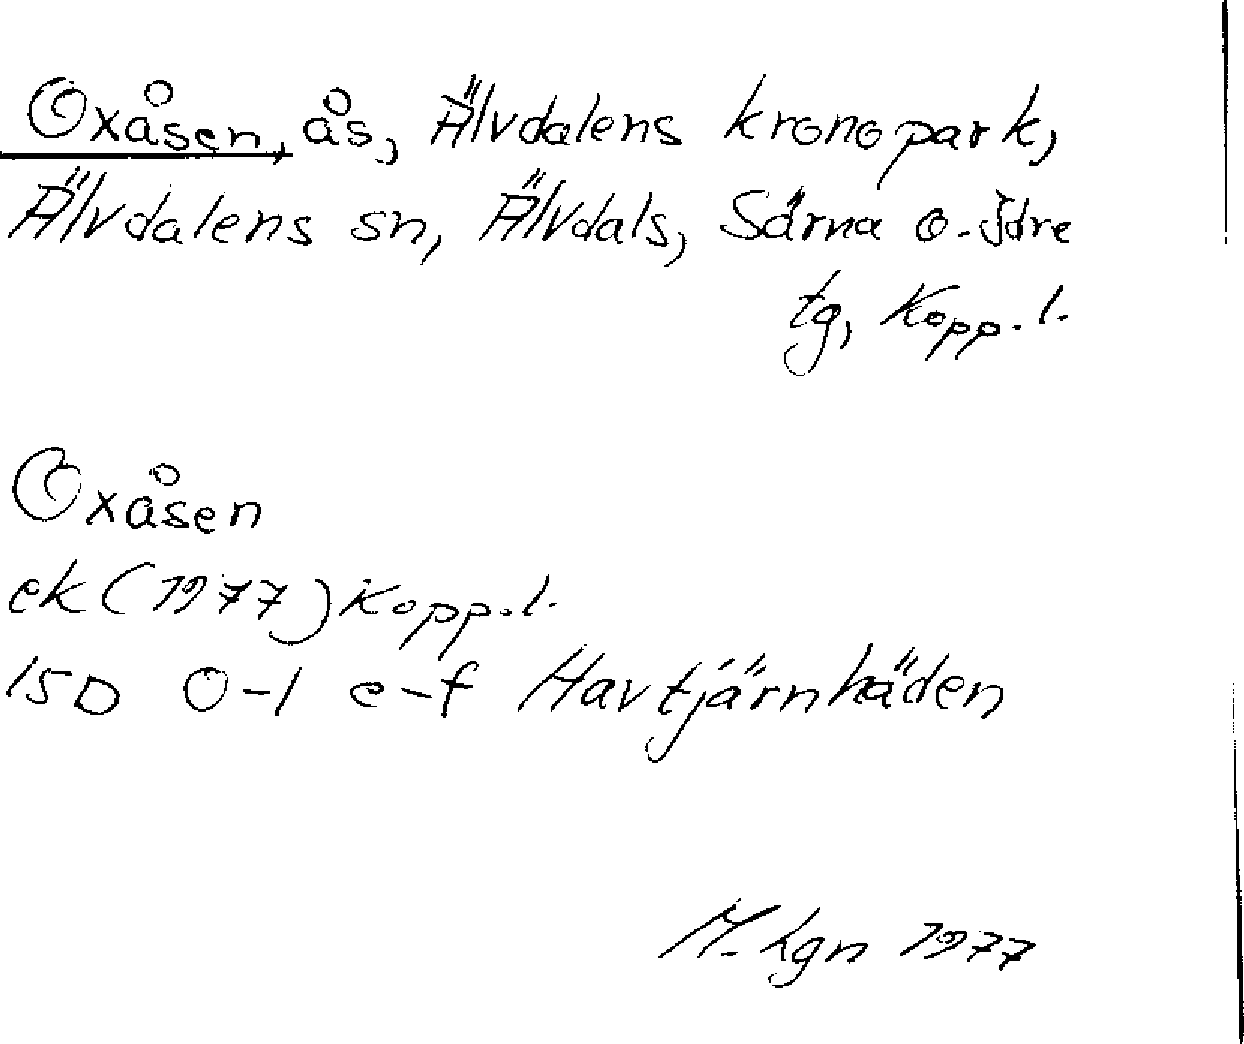 Oxåsen, ås, Älvdalens kronopark,
Älvdalens sn, Älvdals, Särna o. Idre
tg, Kopp. l.
Oxåsen
ek (1977) Kopp. l.
15D 0-1 e-f Havtjärnhäden
M. Lgn 1977